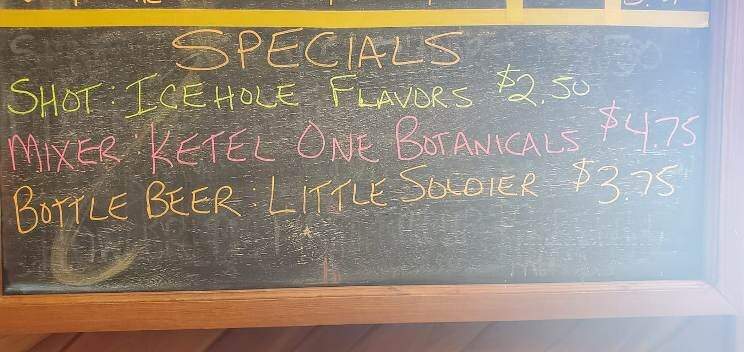 SPECIALS
SHOT: ICEHOLE FLAVORS $2.50
MIXER: KETEL ONE BOTANICALS $4.75
BOTTLE BEER: LITTLE SOLDIER $3.75